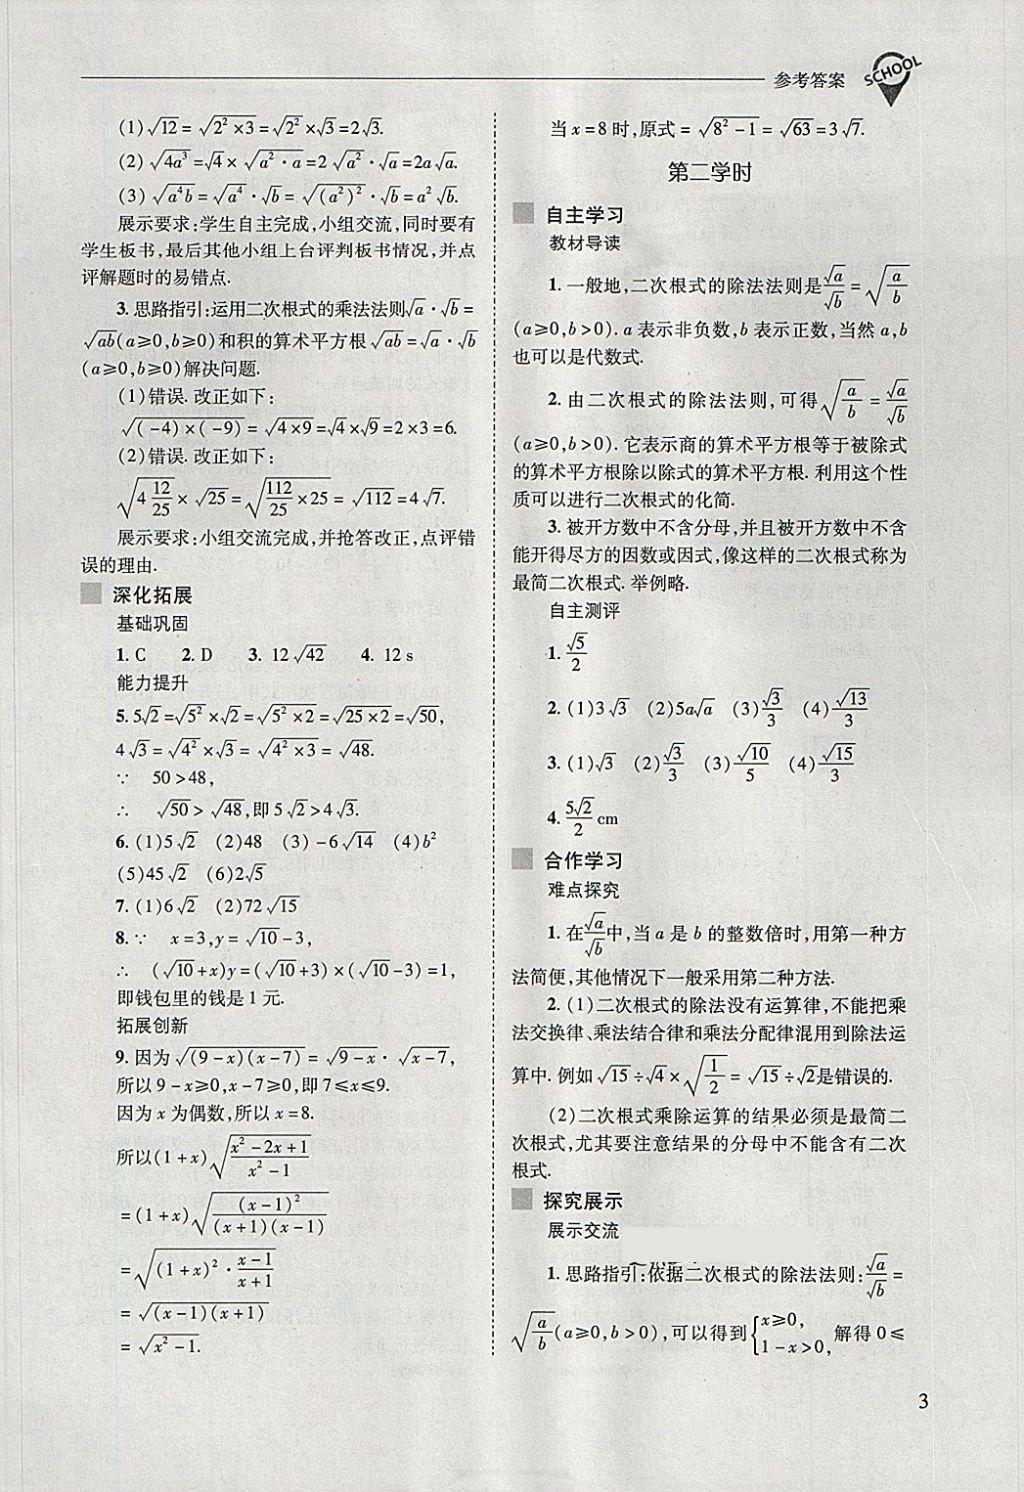 参考答案
SCHOOL
(1)√12 = √(2²×3) = √2² × √3 = 2√3.
(2)√(4a³) = √4 × √(a²·a) = 2√a² · √a = 2a√a.
(3)√(a⁴b) = √a⁴ · √b = √((a²)²) · √b = a²√b.
展示要求:学生自主完成,小组交流,同时要有
学生板书,最后其他小组上台评判板书情况,并点
评解题时的易错点.
3. 思路指引:运用二次根式的乘法法则√a·√b =
√ab(a≥0,b≥0)和积的算术平方根√ab = √a·√b
(a≥0,b≥0)解决问题.
(1)错误. 改正如下:
√((-4)×(-9)) = √(4×9) = √4×√9 = 2×3 = 6.
(2)错误. 改正如下:
√(4 12/25) × √25 = √(112/25 × 25) = √112 = 4√7.
展示要求:小组交流完成,并抢答改正,点评错
误的理由.
深化拓展
基础巩固
1. C 2. D 3. 12√42 4. 12 s
能力提升
5. 5√2 = √5² × √2 = √(5²×2) = √(25×2) = √50,
4√3 = √4² × √3 = √(4²×3) = √48.
∵ 50>48,
∴ √50 > √48,即 5√2 > 4√3.
6. (1)5√2 (2)48 (3)-6√14 (4)b²
(5)45√2 (6)2√5
7. (1)6√2 (2)72√15
8. ∵ x=3,y=√10-3,
∴ (√10+x)y=(√10+3)×(√10-3)=1,
即钱包里的钱是 1 元.
拓展创新
9. 因为√((9-x)(x-7)) = √(9-x) · √(x-7),
所以 9-x≥0,x-7≥0,即 7≤x≤9.
因为 x 为偶数,所以 x=8.
所以(1+x)√((x²-2x+1)/(x²-1))
=(1+x)√((x-1)²/((x+1)(x-1)))
=√((1+x)²·(x-1)/(x+1))
=√((x-1)(x+1))
=√(x²-1).
当 x=8 时,原式 = √(8²-1) = √63 = 3√7.
第二学时
自主学习
教材导读
1. 一般地,二次根式的除法法则是√a/√b = √(a/b)
(a≥0,b>0). a 表示非负数,b 表示正数,当然 a,b
也可以是代数式.
2. 由二次根式的除法法则,可得√(a/b) = √a/√b
(a≥0,b>0). 它表示商的算术平方根等于被除式
的算术平方根除以除式的算术平方根. 利用这个性
质可以进行二次根式的化简.
3. 被开方数中不含分母,并且被开方数中不含
能开得尽方的因数或因式,像这样的二次根式称为
最简二次根式. 举例略.
自主测评
1. √5/2
2. (1)3√3 (2)5a√a (3)√3/3 (4)√13/3
3. (1)√3 (2)√3/3 (3)√10/5 (4)√15/3
4. 5√2/2 cm
合作学习
难点探究
1. 在√a/√b中,当 a 是 b 的整数倍时,用第一种方
法简便,其他情况下一般采用第二种方法.
2. (1)二次根式的除法没有运算律,不能把乘
法交换律、乘法结合律和乘法分配律混用到除法运
算中. 例如√15÷√4×√(1/2) = √15÷√2是错误的.
(2)二次根式乘除运算的结果必须是最简二
次根式,尤其要注意结果的分母中不能含有二次
根式.
探究展示
展示交流
1. 思路指引:依据二次根式的除法法则:√a/√b =
√(a/b)(a≥0,b>0),可以得到{x≥0, 1-x>0, 解得 0≤
3